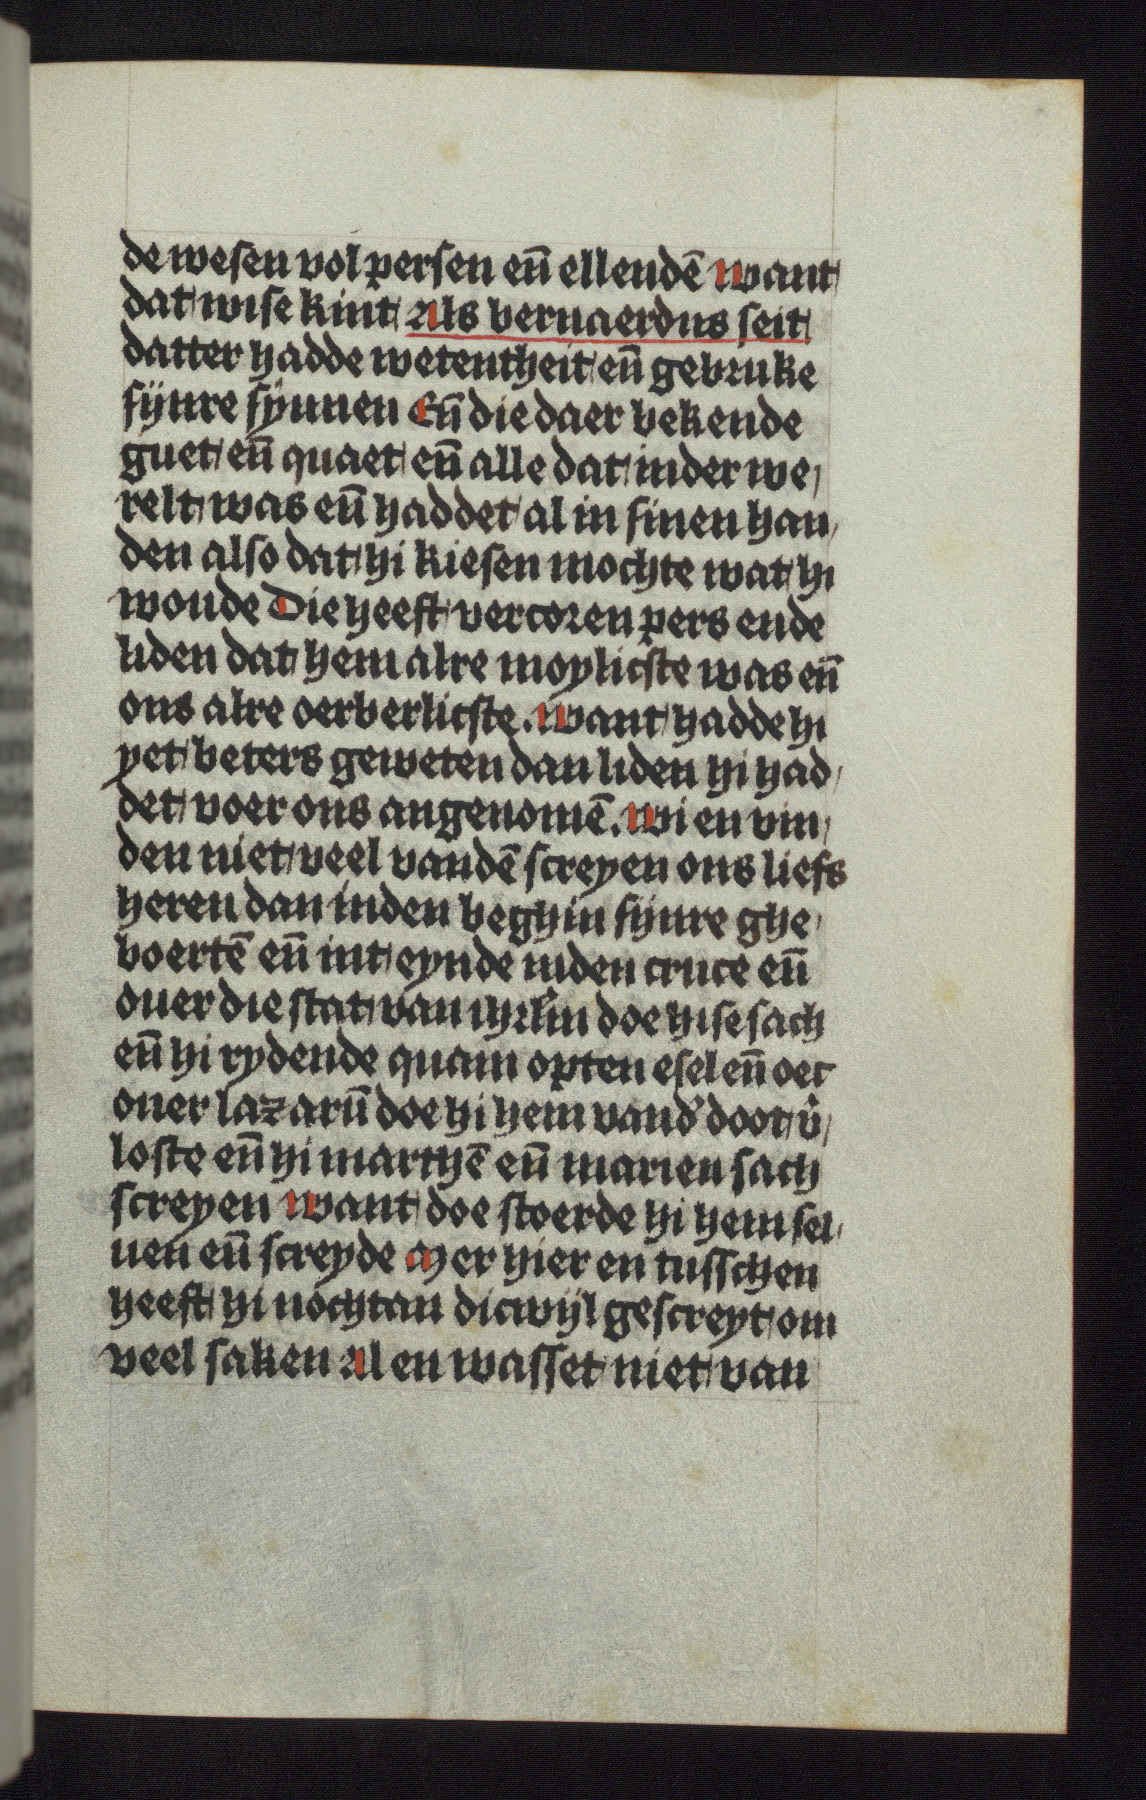 de wesen vol persen en̄ ellendē Want
dat wise kint Als bernaerdus seit
datter hadde wetentheit en̄ gebruke
sijnre synnen En̄ die daer bekende
guet en̄ quaet en̄ alle dat inder we,
relt was en̄ haddet al in sinen han,
den also dat hi kiesen mochte wat hi
woude Die heeft vercoren pers ende
liden dat hem alre moylicste was en̄
ons alre oerberlicste. Want hadde hi
yet beters geweten dan liden hi had,
det voer ons angenomē. Wi en vin,
den niet veel vandē screyen ons liefs
heren dan inden beghin sijnre ghe,
boertē en̄ int eynde inden cruce en̄
ouer die stat van ihrlm̄ doe hise sach
en̄ hi rydende quam opten esel en̄ oec
ouer lazarū doe hi hem vand' doot v̄,
loste en̄ hi marthē en̄ marien sach
screyen Want doe stoerde hi hem sel,
uen en̄ screyde Mer hier en tusschen
heeft hi nochtan dicwijl gescreyt om
veel saken Al en wasset niet van